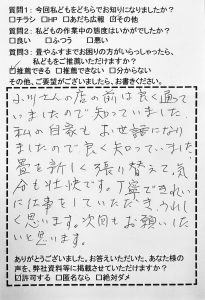 質問1：今回私どもをどちらでお知りになりましたか？
□チラシ □HP □あだち広報 ☑その他
質問2：私どもの作業中の態度はいかがでしたか？
□良い □ふつう □悪い
質問3：畳やふすまでお困りの方がいらっしゃったら、
私どもをご推薦いただけますか？
☑推薦できる □推薦できない □分からない
その他、ご要望がございましたら、お書きください。
さんの店の前は良く通って
いましたので知っていました。
私の自家もお世話になり
ましたので良く知っていました。
畳を新しく張り替えて、気
分も壮快です。丁寧できれい
に仕事をしていただき、うれ
しく思います。次回もお願いした
いと思います。
ありがとうございました。お答えいただいた、あなた様の
声を、弊社資料等に掲載させていただけますか？
☑許可する □匿名なら □絶対ダメ